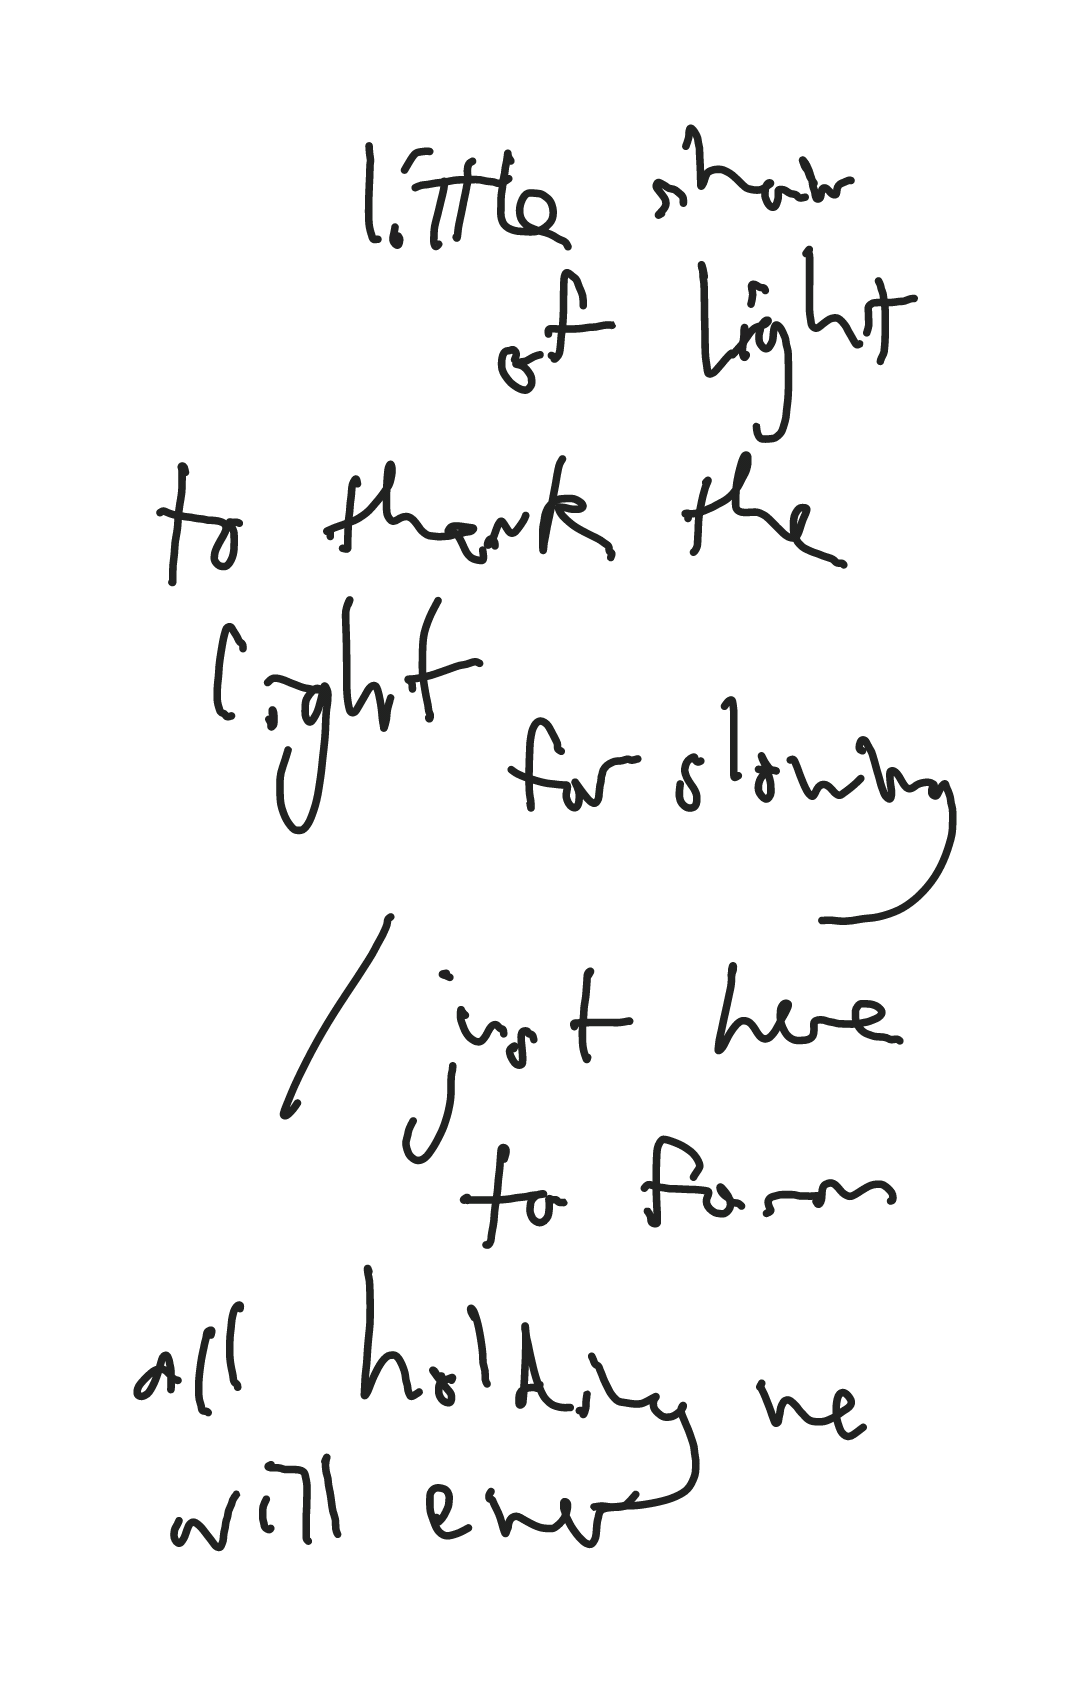 little show
of light
to thank the
light
for slowing
/ just here
to form
all holding we
will ever